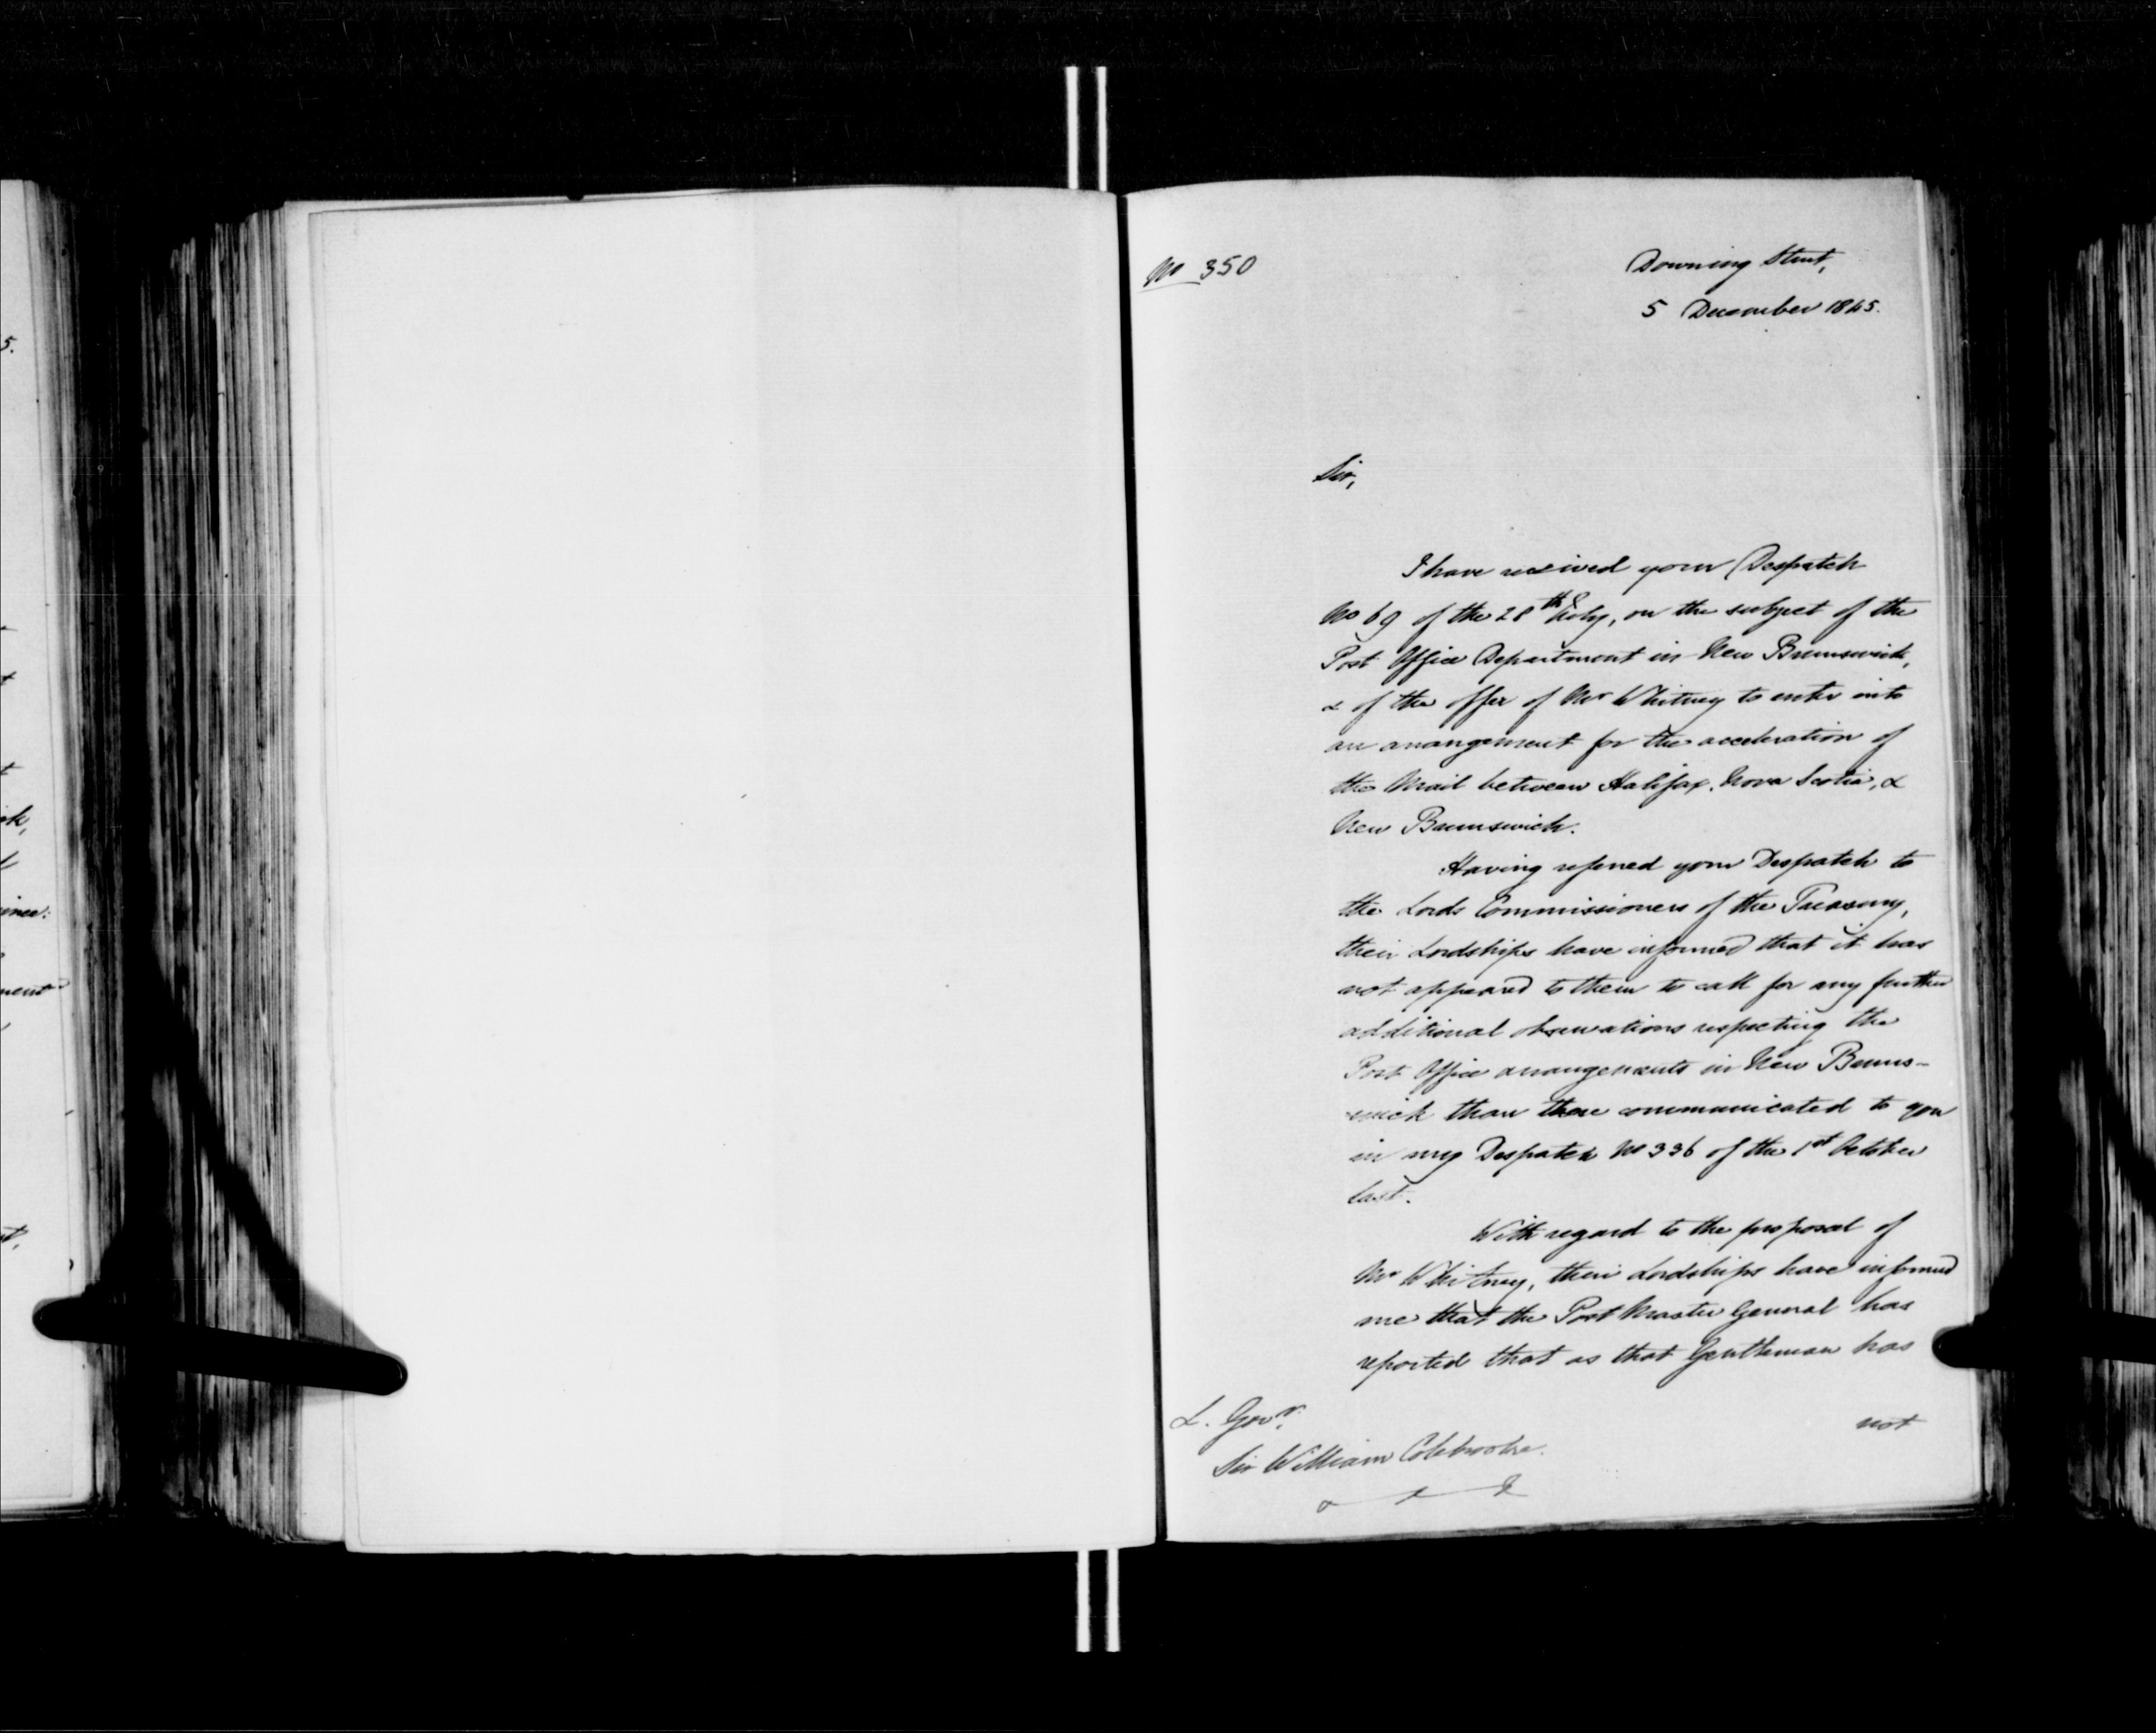 No 350
Downing Street,
5 December 1845.
Sir,
I have received your Despatch
No 69 of the 28th July, on the subject of the
Post Office Department in New Brunswick,
& of the offer of Mr Whitney to enter into
an arrangement for the acceleration of
the Mail between Halifax, Nova Scotia, &
New Brunswick.
Having referred your Despatch to
the Lords Commissioners of the Treasury,
their Lordships have informed that it has
not appeared to them to call for any further
additional observations respecting the
Post Office arrangements in New Bruns-
wick than those communicated to you
in my Despatch No 336 of the 1st October
last.
With regard to the proposal of
Mr Whitney, their Lordships have informed
me that the Post Master General has
reported that as that Gentleman has
not
L. Govr.
Sir William Colebrooke.